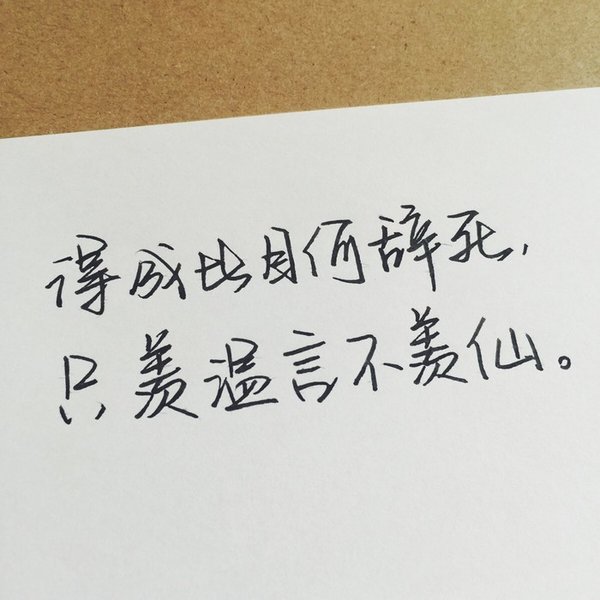 得成比目何辞死,
只羡温言不羡仙。